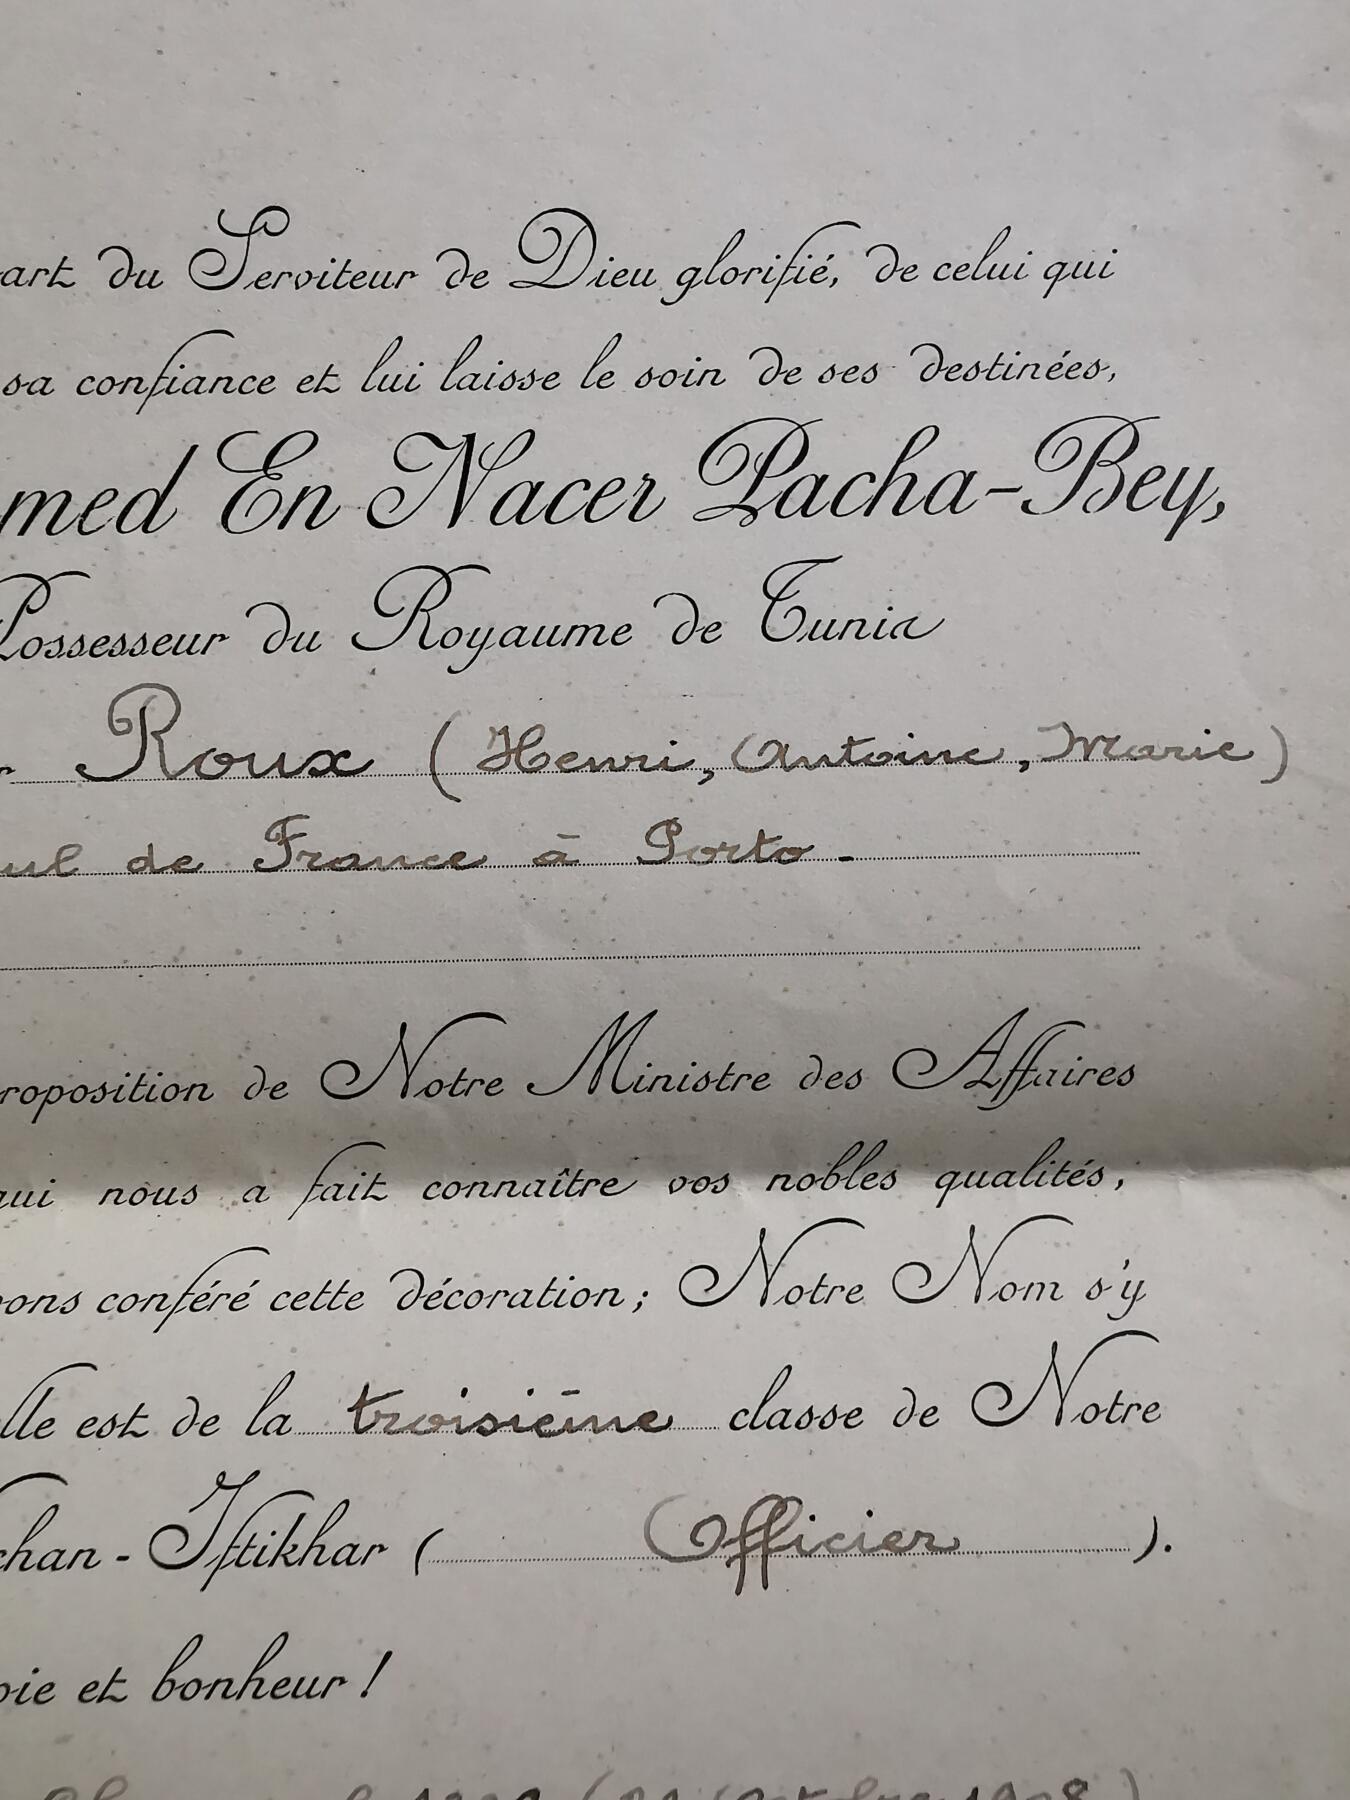 art du Serviteur de Dieu glorifié, de celui qui
sa confiance et lui laisse le soin de ses destinées,
med En Nacer Pacha-Bey,
Possesseur du Royaume de Tunis
r Roux (Henri, Antoine, Marie)
ul de France à Porto.
roposition de Notre Ministre des Affaires
qui nous a fait connaître vos nobles qualités,
vons conféré cette décoration; Notre Nom s'y
lle est de la troisième classe de Notre
chan-Iftikhar ( Officier ).
oie et bonheur !